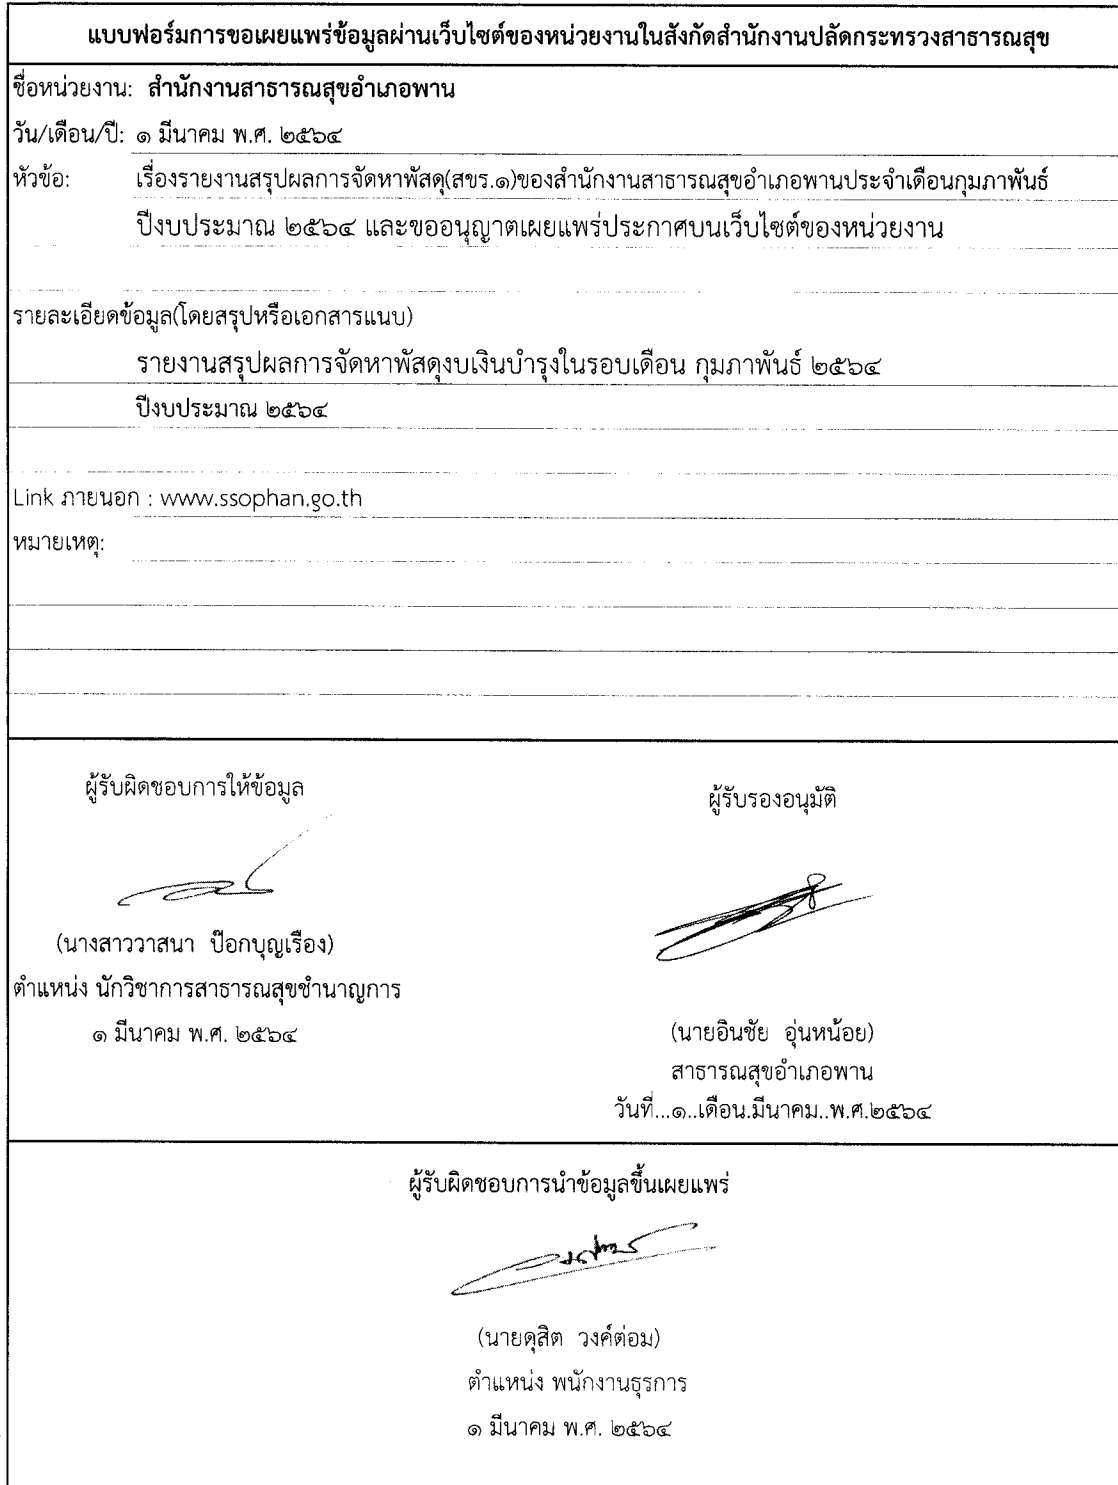 แบบฟอร์มการขอเผยแพร่ข้อมูลผ่านเว็บไซต์ของหน่วยงานในสังกัดสำนักงานปลัดกระทรวงสาธารณสุข
ชื่อหน่วยงาน: สำนักงานสาธารณสุขอำเภอพาน
วัน/เดือน/ปี: ๑ มีนาคม พ.ศ. ๒๕๖๔
หัวข้อ: เรื่องรายงานสรุปผลการจัดหาพัสดุ(สขร.๑)ของสำนักงานสาธารณสุขอำเภอพานประจำเดือนกุมภาพันธ์
ปีงบประมาณ ๒๕๖๔ และขออนุญาตเผยแพร่ประกาศบนเว็บไซต์ของหน่วยงาน
รายละเอียดข้อมูล(โดยสรุปหรือเอกสารแนบ)
รายงานสรุปผลการจัดหาพัสดุงบเงินบำรุงในรอบเดือน กุมภาพันธ์ ๒๕๖๔
ปีงบประมาณ ๒๕๖๔
Link ภายนอก : www.ssophan.go.th
หมายเหตุ:
ผู้รับผิดชอบการให้ข้อมูล
(นางสาววาสนา ป๊อกบุญเรือง)
ตำแหน่ง นักวิชาการสาธารณสุขชำนาญการ
๑ มีนาคม พ.ศ. ๒๕๖๔
ผู้รับรองอนุมัติ
(นายอินชัย อุ่นหน้อย)
สาธารณสุขอำเภอพาน
วันที่...๑..เดือน.มีนาคม..พ.ศ.๒๕๖๔
ผู้รับผิดชอบการนำข้อมูลขึ้นเผยแพร่
(นายดุสิต วงค์ต่อม)
ตำแหน่ง พนักงานธุรการ
๑ มีนาคม พ.ศ. ๒๕๖๔